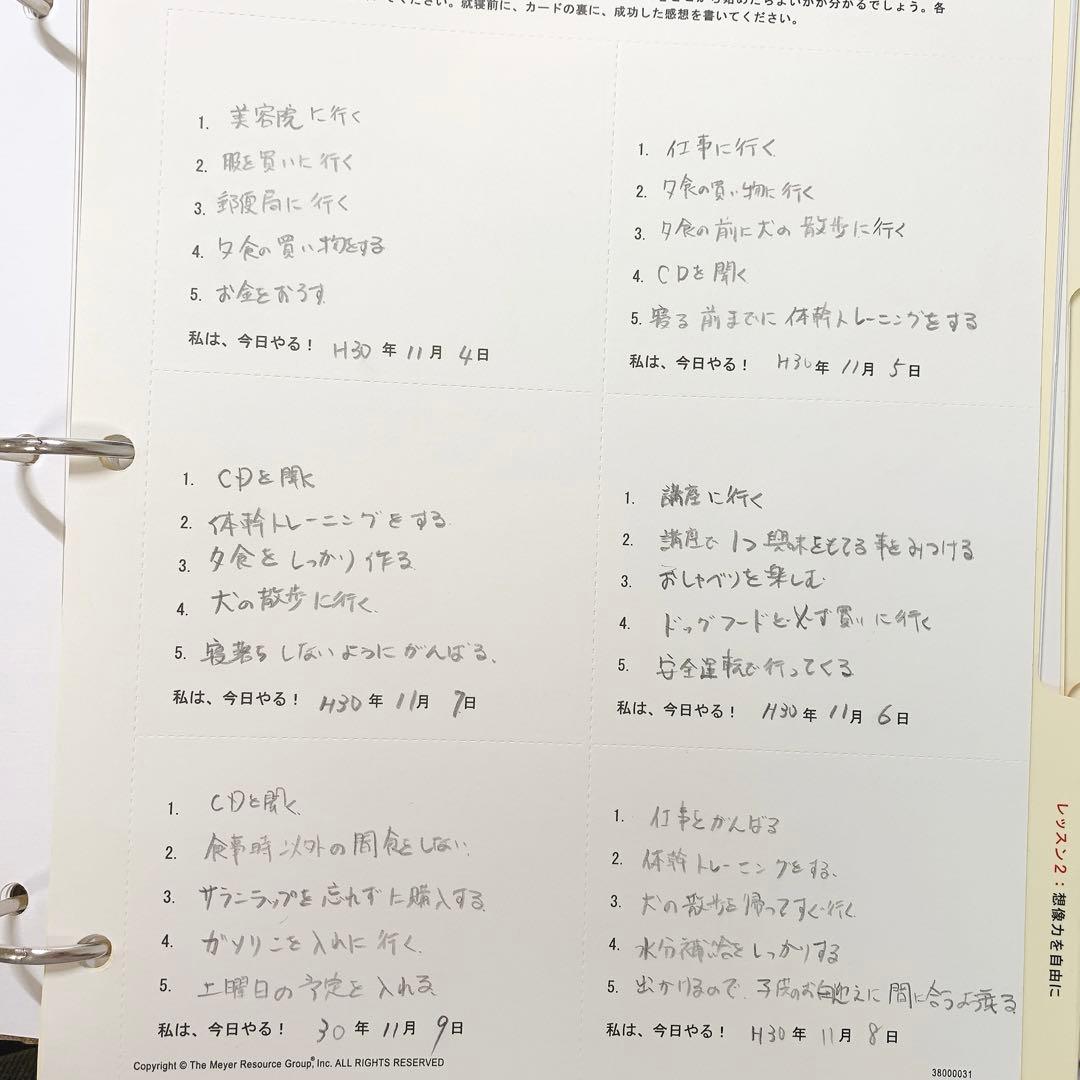 てください。就寝前に、カードの裏に、成功した感想を書いてください。
始めたらよいかが分かるでしょう。各
1. 美容院に行く
2. 服を買いに行く
3. 郵便局に行く
4. 夕食の買い物をする
5. お金をおろす
私は、今日やる! H30年 11月 4日
1. 仕事に行く
2. 夕食の買い物に行く
3. 夕食の前に犬の散歩に行く
4. CDを聞く
5. 寝る前までに体幹トレーニングをする
私は、今日やる! H30年 11月 5日
1. CDを聞く
2. 体幹トレーニングをする
3. 夕食をしっかり作る
4. 犬の散歩に行く
5. 寝落ちしないようにがんばる。
私は、今日やる! H30年 11月 7日
1. 講座に行く
2. 講座で1つ興味をもてる事をみつける
3. おしゃべりを楽しむ
4. ドッグフードを必ず買いに行く
5. 安全運転で行ってくる
私は、今日やる! H30年 11月 6日
1. CDを聞く
2. 食事時以外の間食をしない
3. サランラップを忘れずに購入する
4. ガソリンを入れに行く
5. 土曜日の予定を入れる
私は、今日やる! 30年 11月 9日
1. 仕事をがんばる
2. 体幹トレーニングをする
3. 犬の散歩を帰ってすぐ行く
4. 水分補給をしっかりする
5. 出かけるので、子供のお迎えに間に合うよ
私は、今日やる! H30年 11月 8日
レッスン2:想像力を自由に
Copyright © The Meyer Resource Group,® Inc. ALL RIGHTS RESERVED
38000031